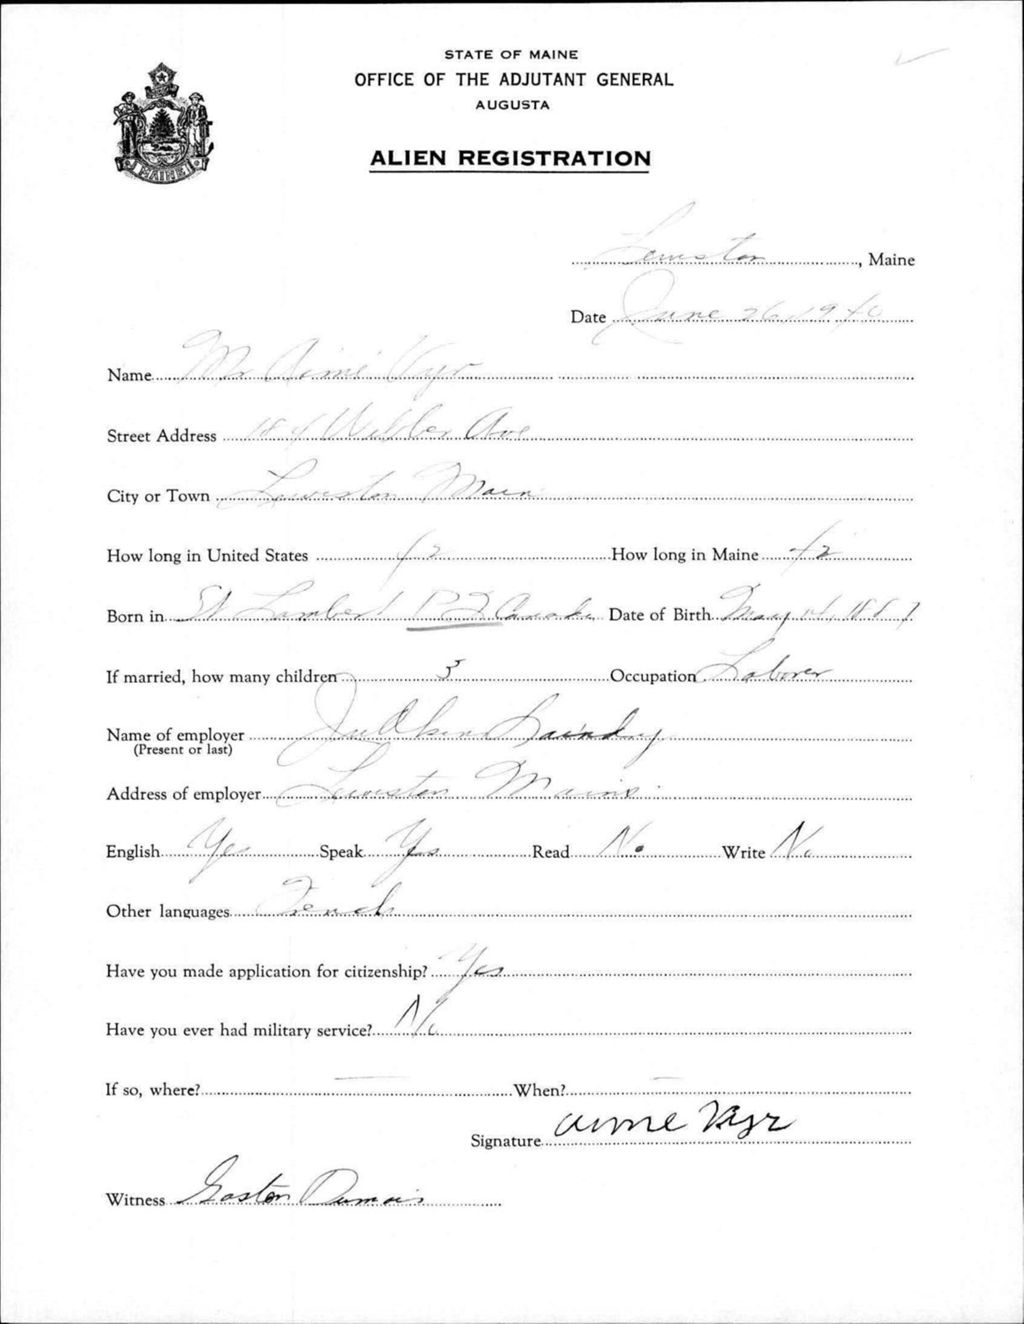 STATE OF MAINE
OFFICE OF THE ADJUTANT GENERAL
AUGUSTA
ALIEN REGISTRATION
MAINE
Lewiston, Maine
Date June 26, 1940
Name Mr Aimé Cyr
Street Address 184 Webber Ave
City or Town Lewiston Main
How long in United States 42 How long in Maine 42
Born in St Lambert P.Q. Canada Date of Birth May 14, 1887
If married, how many children 5 Occupation Laborer
Name of employer Laundry
(Present or last)
Address of employer Lewiston Maine
English Yes Speak Yes Read No Write No
Other languages French
Have you made application for citizenship? Yes
Have you ever had military service? No
If so, where? — When? —
Signature Aime
Witness Gaston Dumais